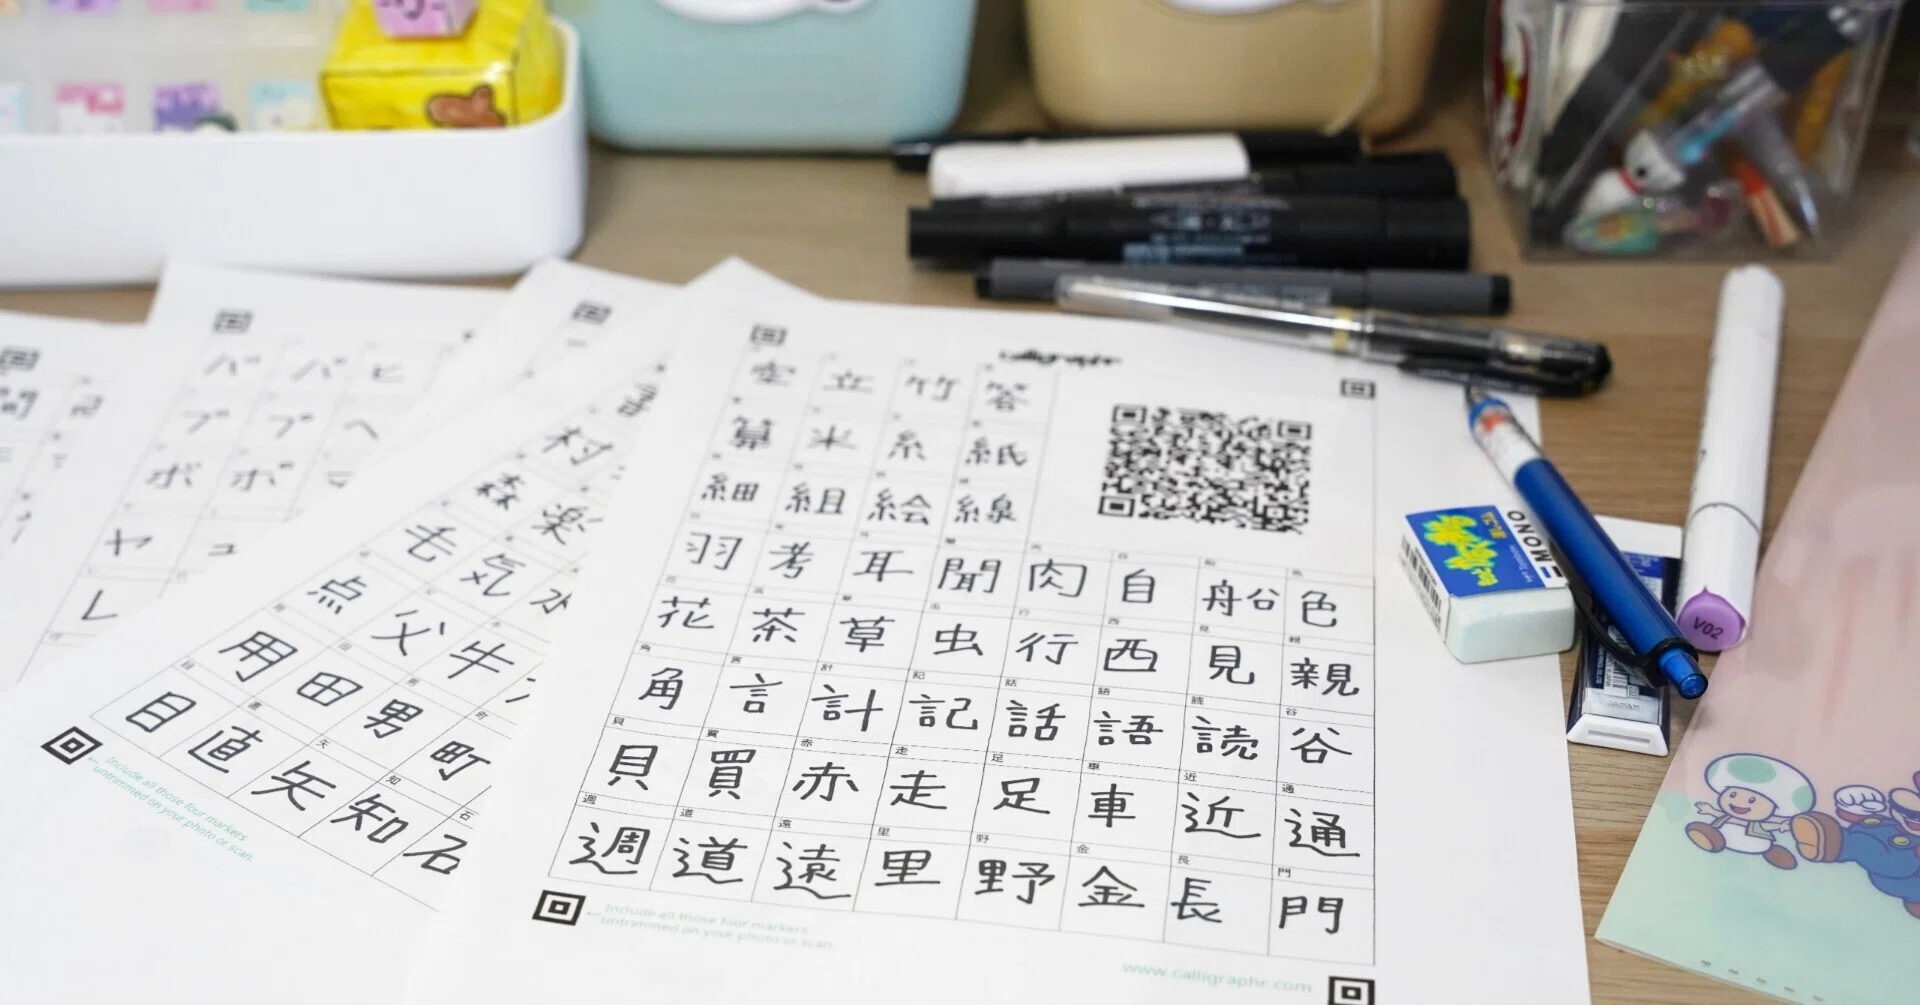 バ パ ヒ
ブ プ ヘ
ボ ポ
ヤ ュ
レ
村
森 楽
毛 気 水
点 父 牛
用 田 男 町
目 直 矢 知 石
直
矢
知
石
町
←Include all those four markers
untrimmed on your photo or scan.
calligraphr
空 立 竹 答
算 米 糸 紙
細 組 絵 線
羽 考 耳 聞 肉 自 船 色
花 茶 草 虫 行 西 見 親
角 言 計 記 話 語 読 谷
貝 買 赤 走 足 車 近 通
週 道 遠 里 野 金 長 門
←Include all those four markers
untrimmed on your photo or scan.
www.calligraphr.com
MONO
V02
JAPAN